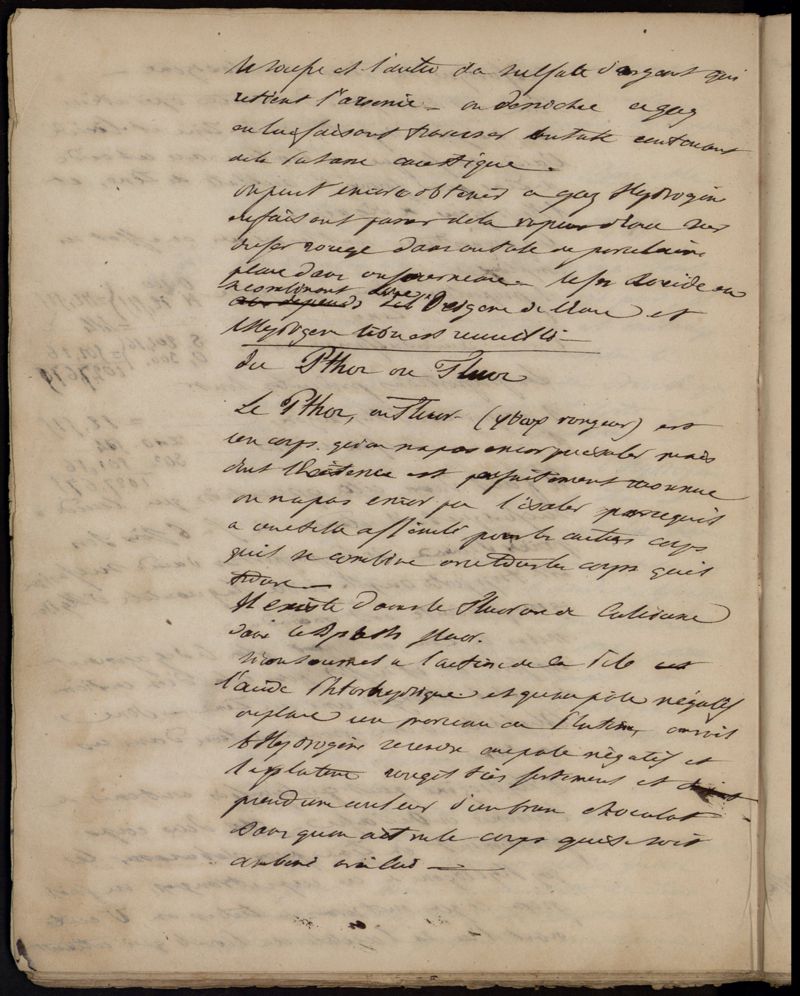 le soufre et l'autre du sulfate d'argent qui
retient l'arsenic – on dessèche ce gaz
en lui faisant traverser un tube contenant
de la potasse caustique.
on peut encore obtenir ce gaz Hydrogène
en faisant passer de la vapeur d'eau sur
du fer rouge dans un tube en porcelaine
placé dans un fourneau – le fer s'oxide en
se combinant avec l'oxigène de l'eau et
l'Hydrogène est recueilli –
du Phtor ou Fluor
Le Phtor, ou Fluor (rongeur) est
un corps qu'on n'a pas encore pu isoler mais
dont l'existence est parfaitement connue
on n'a pas encor pu l'isoler parcequ'il
a une telle affinité pour les autres corps
qu'il se combine avec tous les corps qu'il
trouve –
Il existe dans le Fluorure de Calcium
dans le Spath fluor.
si on soumet à l'action de la Pile
l'acide Phtorhydrique et qu'au pôle négatif
on place un morceau de Platine, on voit
l'Hydrogène se rendre au pole négatif et
le platine rougit très fortement et
prend une couleur d'un brun chocolat
sans qu'on ait vu le corps qui s'soit
combiné avec lui –